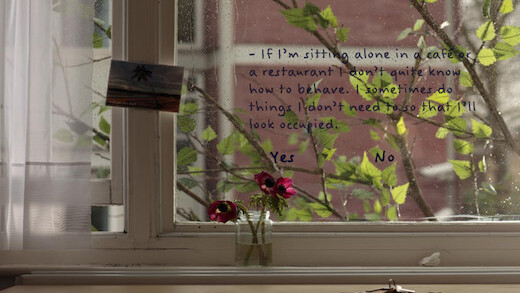 - If I'm sitting alone in a café or
a restaurant I don't quite know
how to behave. I sometimes do
things I don't need to so that I'll
look occupied.
Yes No